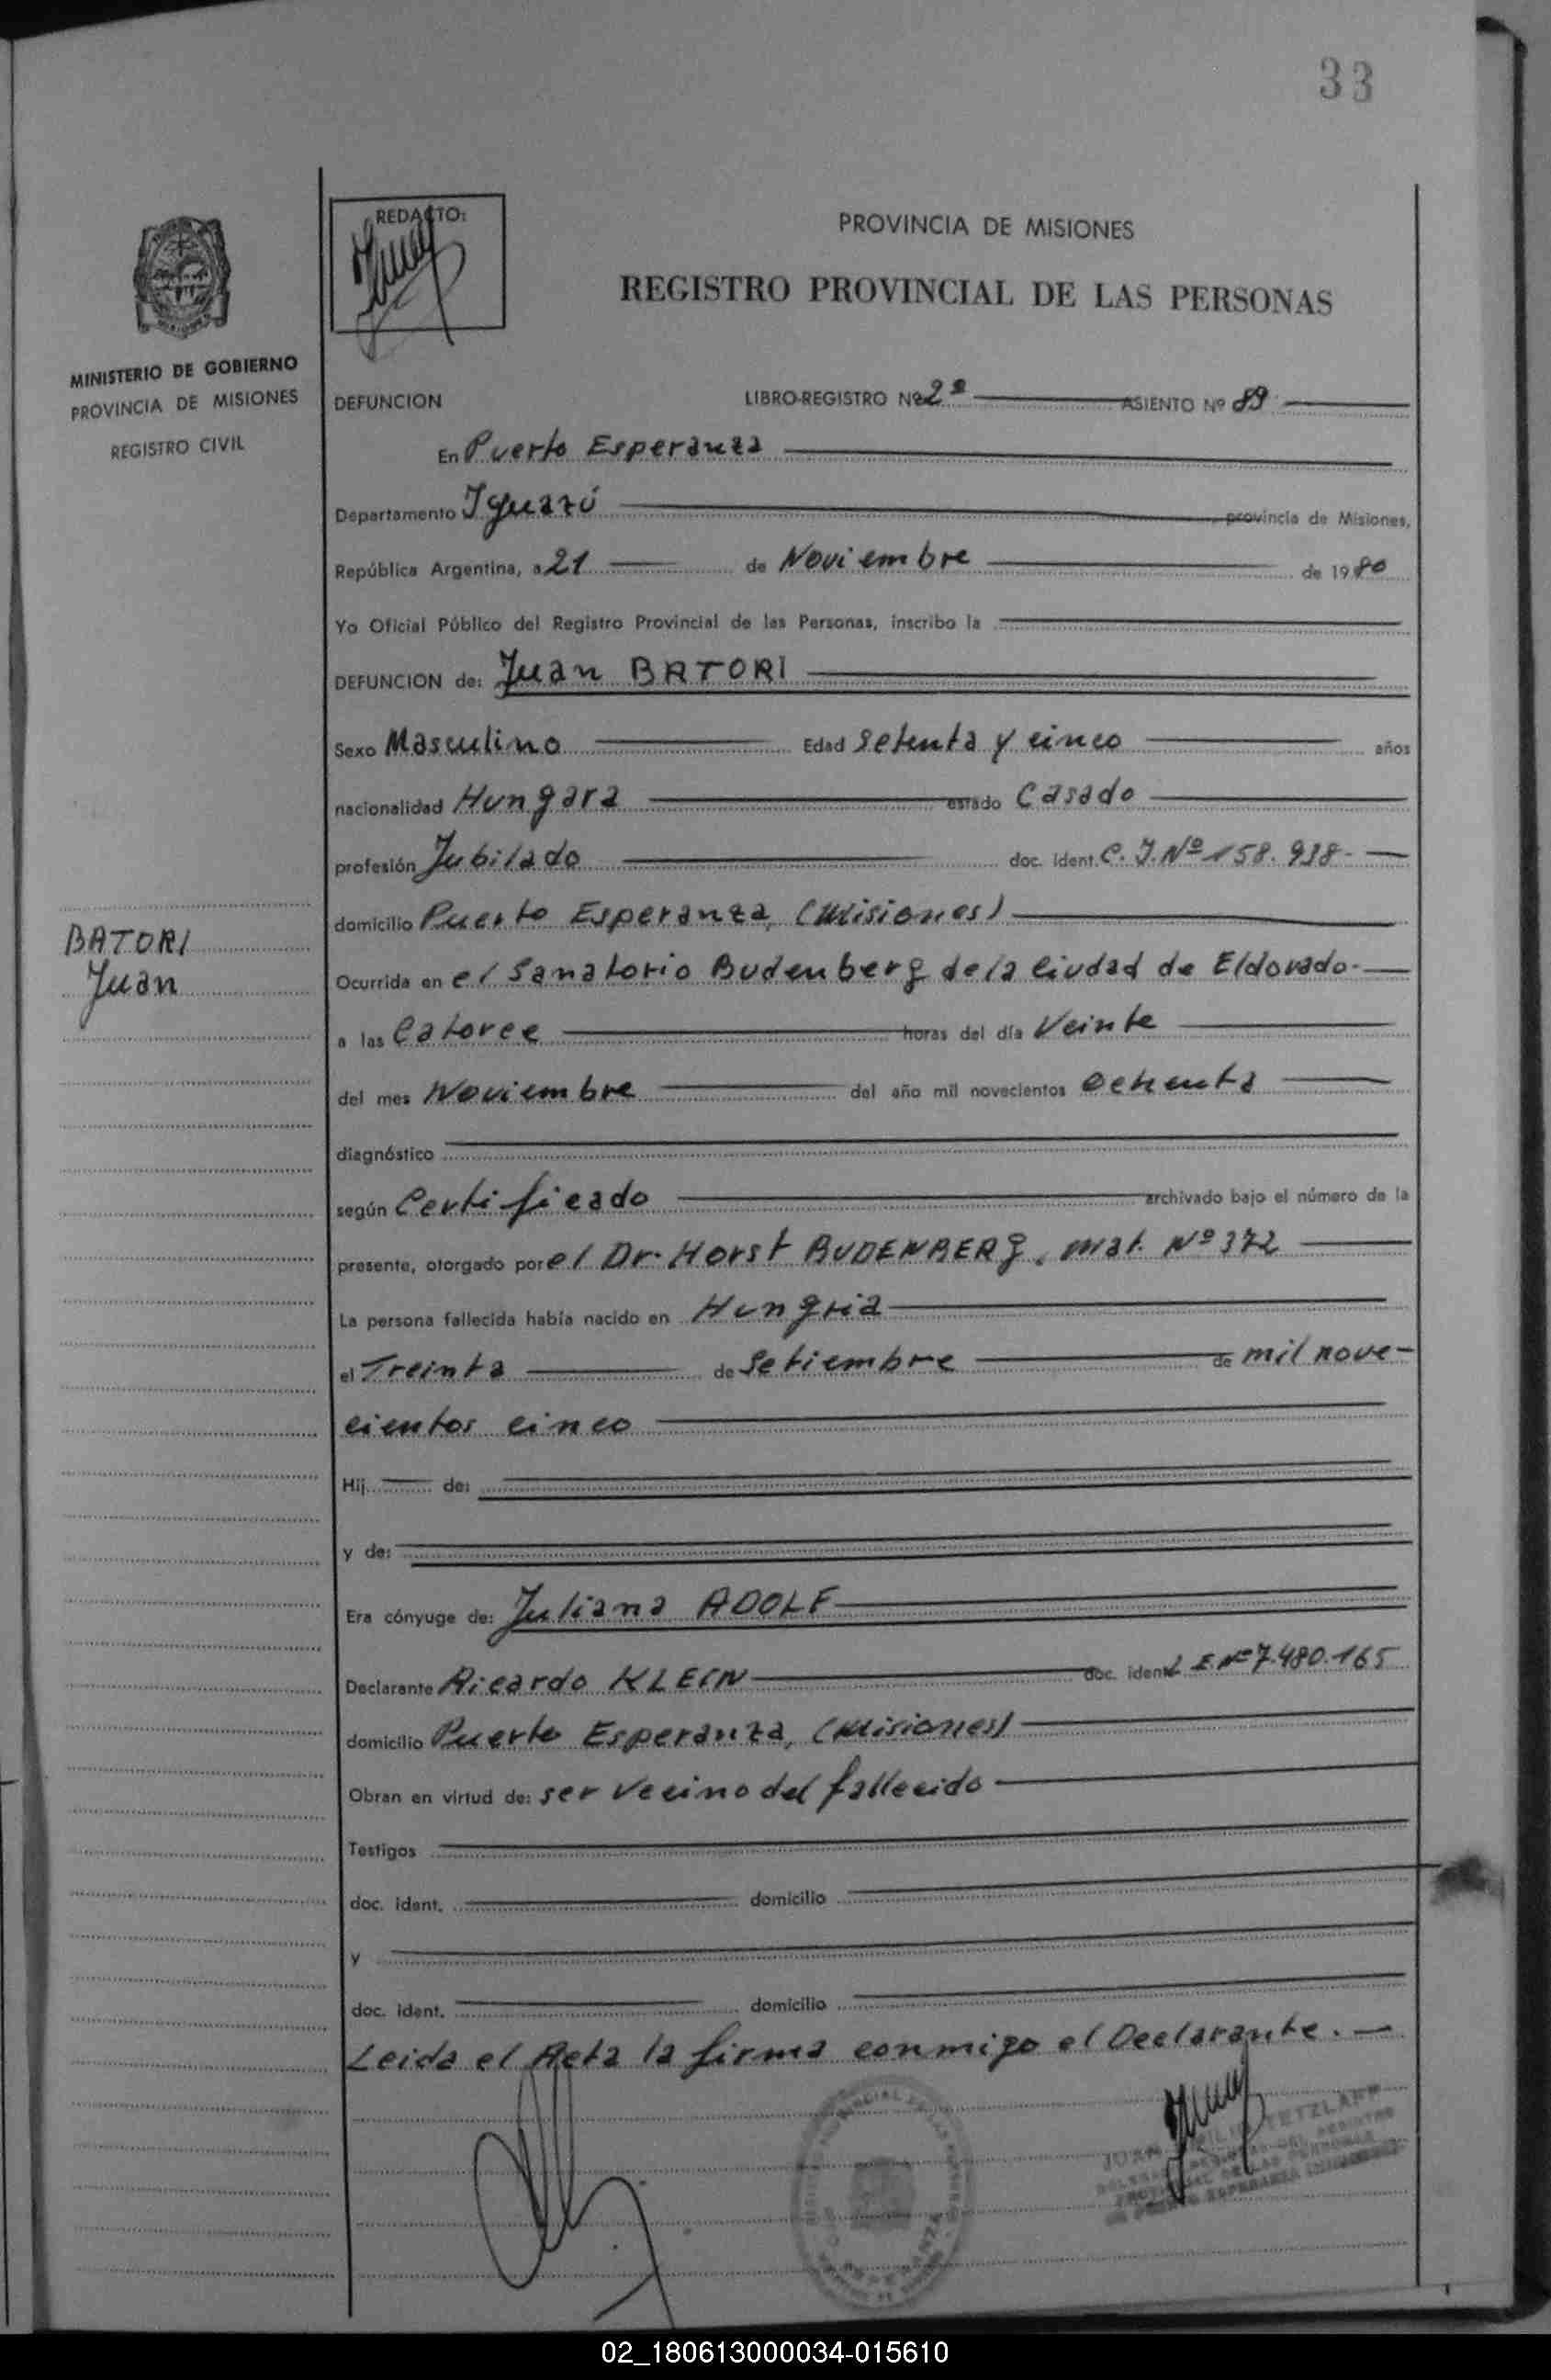 33
REDACTO:
PROVINCIA DE MISIONES
REGISTRO PROVINCIAL DE LAS PERSONAS
MINISTERIO DE GOBIERNO
PROVINCIA DE MISIONES
REGISTRO CIVIL
DEFUNCION LIBRO-REGISTRO Nº 2º ASIENTO Nº 89
En Puerto Esperanza
Departamento Iguazú provincia de Misiones,
República Argentina, a 21 de Noviembre de 1980
Yo Oficial Público del Registro Provincial de las Personas, inscribo la
DEFUNCION de: Juan BATORI
Sexo Masculino Edad setenta y cinco años
nacionalidad Hungara estado Casado
profesión Jubilado doc. ident. C. I. Nº 158. 938-
domicilio Puerto Esperanza, (Misiones)
BATORI
Juan
Ocurrida en el Sanatorio Budenberg de la Ciudad de Eldorado-
a las Catorce horas del día Veinte
del mes Noviembre del año mil novecientos Ochenta
diagnóstico
según Certificado archivado bajo el número de la
presente, otorgado por el Dr. Horst BUDENBERg, mat. Nº 372
La persona fallecida había nacido en Hungria
el Treinta de Setiembre de mil nove-
cientos cinco
Hij de:
y de:
Era cónyuge de: Juliana ADOLF
Declarante Ricardo KLEIN doc. ident. L E. Nº 7.480.165
domicilio Puerto Esperanza, (Misiones)
Obran en virtud de: ser Vecino del fallecido
Testigos
doc. ident. domicilio
y
doc. ident. domicilio
Leida el Acta la firma conmigo el Declarante.-
JUAN TETZLAFF
02_180613000034-015610